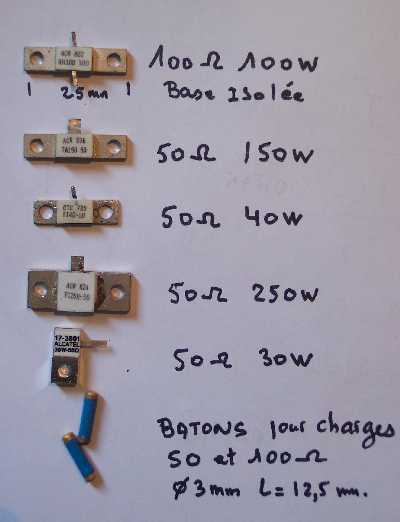 ACR 822
RN100 100
100Ω 100W
25mm
Base Isolée
ACR 836
TA150 50
50Ω 150W
50Ω 40W
ACR 824
T250-50
50Ω 250W
17-3801
ALCATEL
30W-50Ω
50Ω 30W
BATONS pour charges
50 et 100Ω
Ø 3mm L= 12,5 mm.